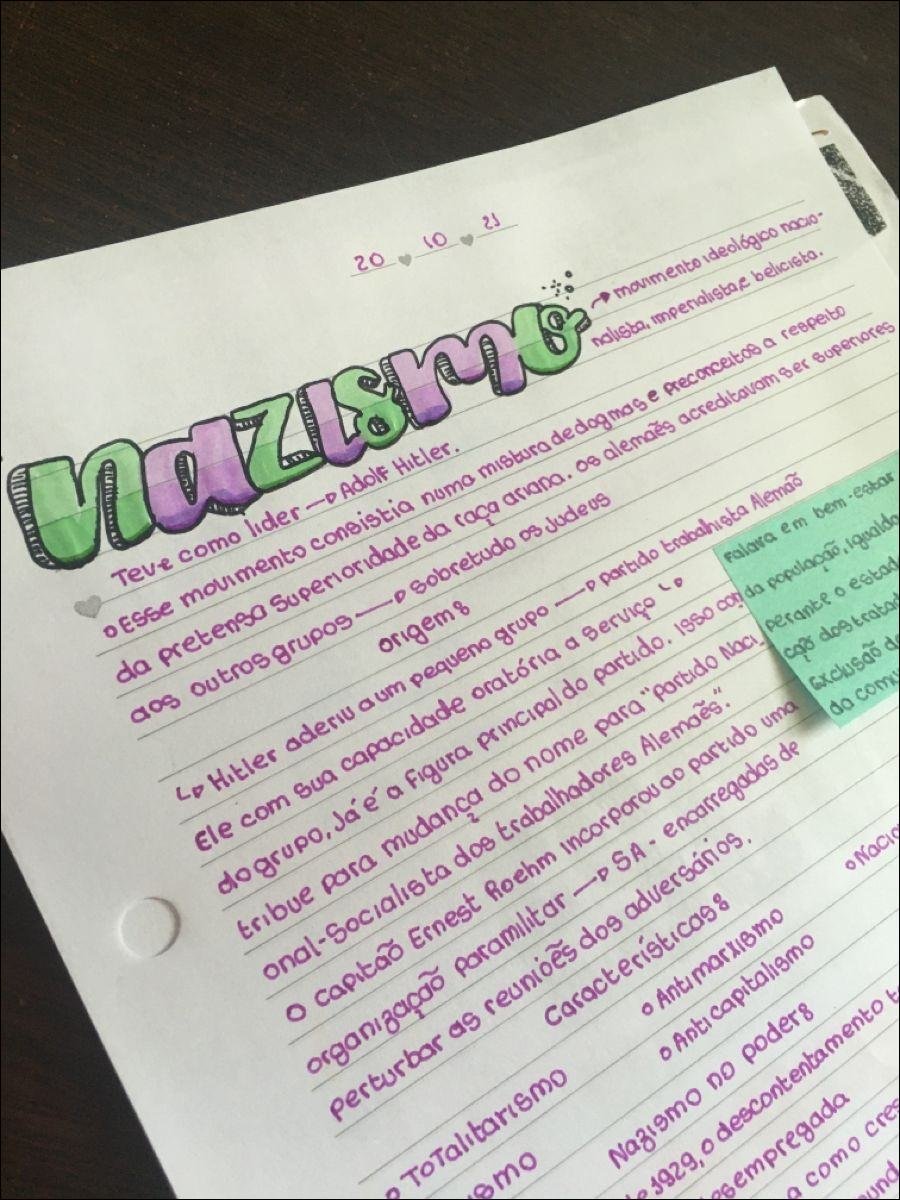 20 10 21
nazismo
→ movimento ideológico nacio-
nalista, imperialista, e belicista.
Teve como líder → Adolf Hitler.
Esse movimento consistia numa mistura de dogmas e preconceitos a respeito
da pretensa superioridade da raça ariana. os alemães acreditavam ser superiores
aos outros grupos → sobretudo os Judeus
origem:
↳ Hitler aderiu a um pequeno grupo → partido trabalhista Alemão
Ele com sua capacidade oratória a serviço ↳
do grupo, Já é a figura principal do partido. Isso con
tribue para mudança do nome para "Partido Naci_
onal-Socialista dos trabalhadores Alemães".
O capitão Ernest Roehm incorporou ao partido uma
organização paramilitar → SA - encarregadas de
perturbar as reuniões dos adversários.
Falava em bem-estar
da população, iguald
perante o estad
ção dos tratad
Exclusão de
da comu
Características:
Antimarxismo
Nacio
Anticapitalismo
Totalitarismo
smo
Nazismo no poder:
1929, o descontentamento
esempregada
a como cres